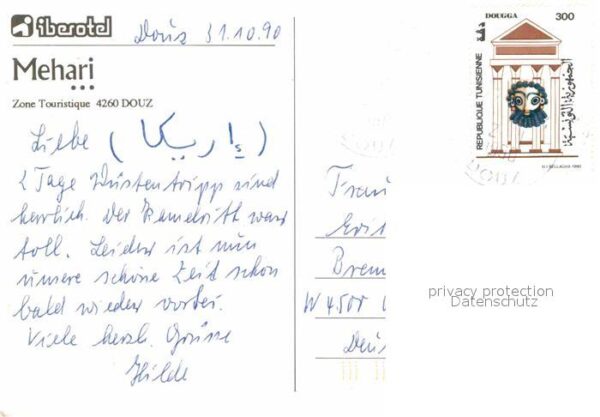 iberotel
Douz 31.10.90
Mehari
Zone Touristique 4260 DOUZ
Liebe (إاريكا)
2 Tage Wüstentripp sind
herrlich. Der Kamelritt war
toll. Leider ist nun
unsere schöne Zeit schon
bald wieder vorbei.
Viele herzl. Grüsse
Hilde
DOUGGA 300
دقة
REPUBLIQUE TUNISIENNE
الجمهورية التونسية
Frau
Brem
W 4500
privacy protection
Datenschutz